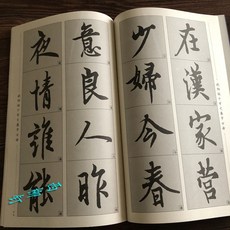 在漢家营
少婦今春
意良人昨
夜情誰能